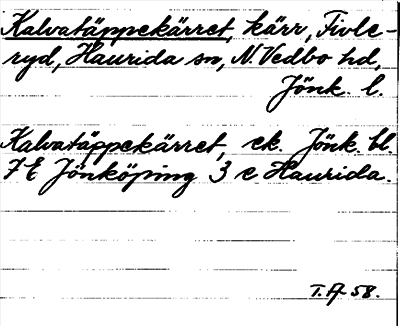 Kalvatäppekärret, kärr, Tivle-
ryd, Haurida sn, N. Vedbo hd,
Jönk. l.
Kalvatäppekärret, ek. Jönk. bl.
7E Jönköping 3 e Haurida.
T. A-58.